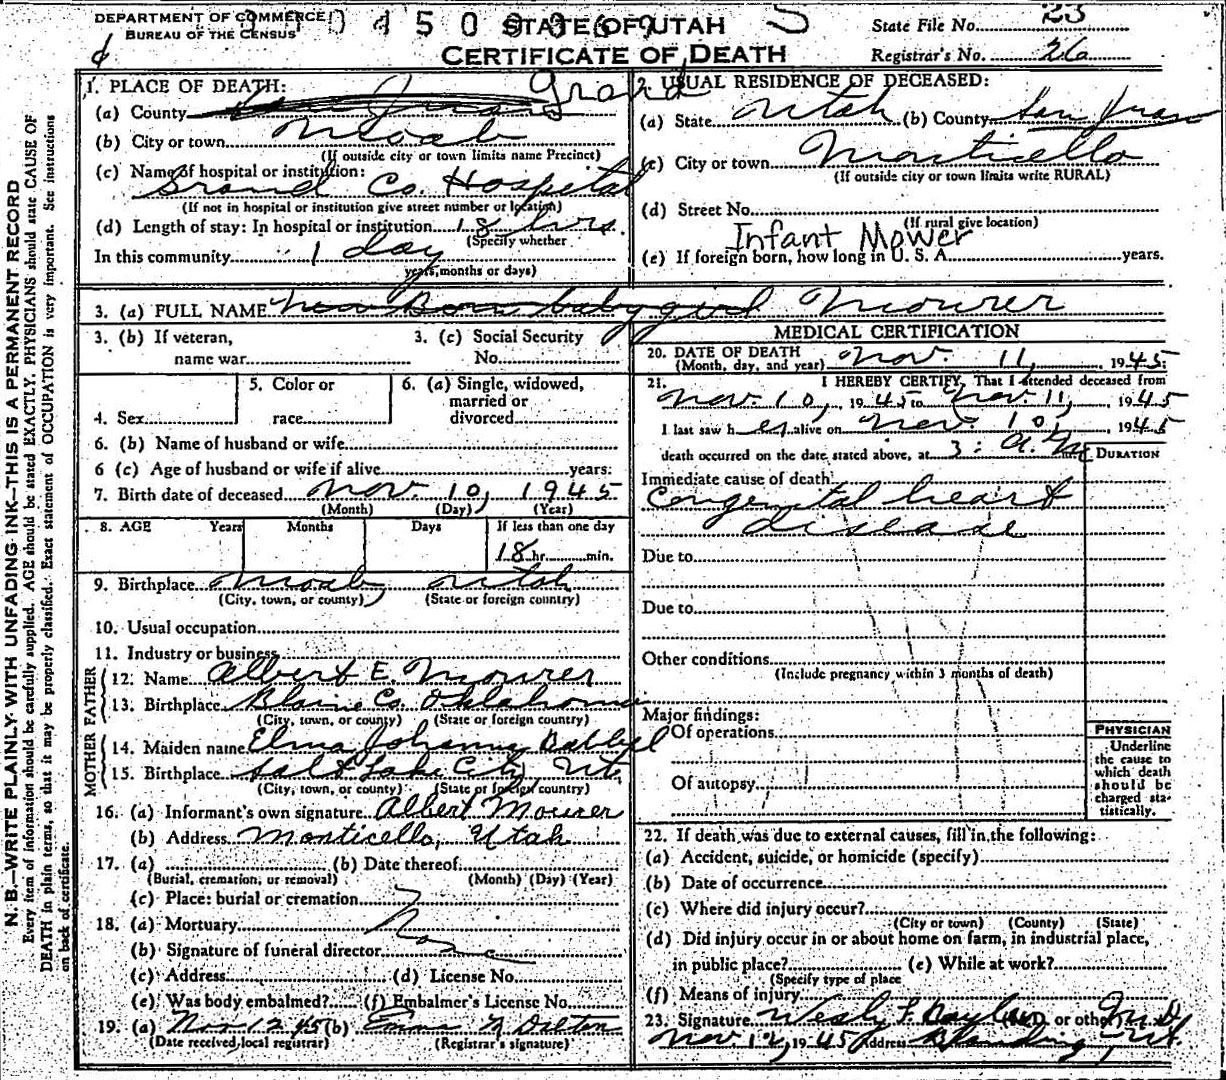 DEPARTMENT OF COMMERCE
BUREAU OF THE CENSUS
STATE OF UTAH
CERTIFICATE OF DEATH
State File No. 23
Registrar's No. 26
N. B.—WRITE PLAINLY WITH UNFADING INK—THIS IS A PERMANENT RECORD
Every item of information should be carefully supplied. AGE should be stated EXACTLY. PHYSICIANS should state CAUSE OF
DEATH in plain terms, so that it may be properly classified. Exact statement of OCCUPATION is very important. See instructions
on back of certificate.
1. PLACE OF DEATH:
(a) County San Juan Grand
(b) City or town Moab
(If outside city or town limits name Precinct)
(c) Name of hospital or institution:
Grand Co. Hospital
(If not in hospital or institution give street number or location)
(d) Length of stay: In hospital or institution 18 hrs.
(Specify whether
In this community 1 day
years, months or days)
2. USUAL RESIDENCE OF DECEASED:
(a) State Utah (b) County San Juan
(c) City or town Monticello
(If outside city or town limits write RURAL)
(d) Street No.
(If rural give location)
Infant Mower
(e) If foreign born, how long in U. S. A. years.
3. (a) FULL NAME New Born baby girl Mourer
3. (b) If veteran,
name war
3. (c) Social Security
No.
4. Sex
5. Color or
race
6. (a) Single, widowed,
married or
divorced
6. (b) Name of husband or wife
6 (c) Age of husband or wife if alive years:
7. Birth date of deceased Nov. 10, 1945
(Month) (Day) (Year)
8. AGE Years Months Days If less than one day
18 hr. min.
9. Birthplace Moab Utah
(City, town, or county) (State or foreign country)
10. Usual occupation
11. Industry or business
FATHER
12. Name Albert E. Mourer
13. Birthplace Blaine Co. Oklahoma
(City, town, or county) (State or foreign country)
MOTHER
14. Maiden name Elma Johanna
15. Birthplace Salt Lake City, Ut.
(City, town, or county) (State or foreign country)
16. (a) Informant's own signature Albert Mourer
(b) Address Monticello, Utah
17. (a) (b) Date thereof
(Burial, cremation, or removal) (Month) (Day) (Year)
(c) Place: burial or cremation
18. (a) Mortuary None
(b) Signature of funeral director
(c) Address (d) License No.
(e) Was body embalmed? (f) Embalmer's License No.
19. (a) Nov 12 45 (b) Emma N Dalton
(Date received local registrar) (Registrar's signature)
MEDICAL CERTIFICATION
20. DATE OF DEATH
(Month, day, and year) Nov. 11, 1945
21. I HEREBY CERTIFY, That I attended deceased from
Nov. 10, 1945 to Nov. 11, 1945
I last saw her alive on Nov 10, 1945
death occurred on the date stated above, at 3: A. M
DURATION
Immediate cause of death
Congenital heart
disease
Due to
Due to
Other conditions
(Include pregnancy within 3 months of death)
Major findings:
Of operations
Of autopsy
PHYSICIAN
Underline
the cause to
which death
should be
charged sta-
tistically.
22. If death was due to external causes, fill in the following:
(a) Accident, suicide, or homicide (specify)
(b) Date of occurrence
(c) Where did injury occur?
(City or town) (County) (State)
(d) Did injury occur in or about home on farm, in industrial place,
in public place? (e) While at work?
(Specify type of place
(f) Means of injury
23. Signature Wesly F. Bayles (M.D. or other) M.D.
Nov. 12, 1945 Address Blanding, Ut.